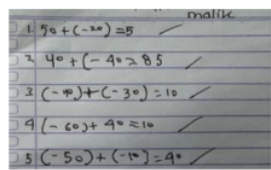 malik
1. 50 + (-20) = 5
2 40 + (- 40 = 85
3 (-10) + (- 30) = 10
4 (- 60) + 40 = 10
5 (-50) + (-10) = 40